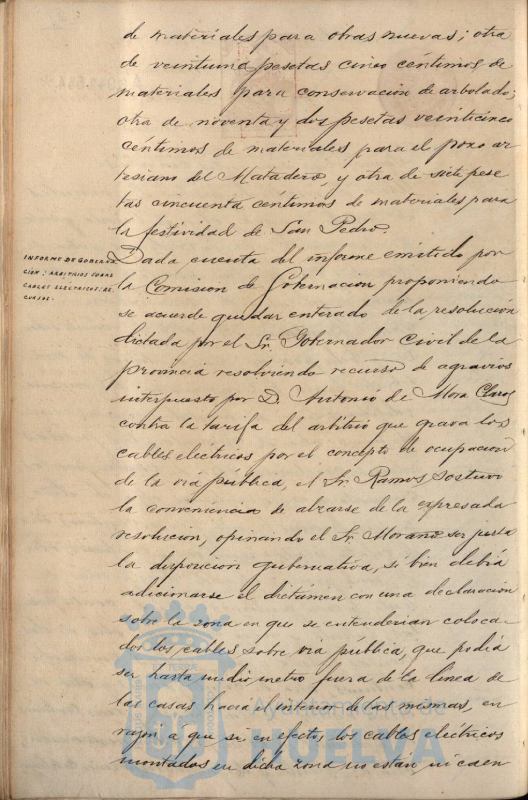 de materiales para obras nuevas; otra
de veintiuna pesetas cinco céntimos de
materiales para conservacion de arbolado;
otra de noventa y dos pesetas veinticinco
céntimos de materiales para el pozo ar
tesiano del Matadero, y otra de siete pese
tas cincuenta céntimos de materiales para
la festividad de San Pedro.
INFORME DE GOBERNA
CION; ARBITRIOS SOBRE
CABLES ELÉCTRICOS: RE
CURSOS.
Dada cuenta del informe emitido por
la Comision de Gobernacion proponiendo
se acuerde quedar enterado de la resolución
dictada por el Sr. Gobernador Civil de la
provincia resolviendo recurso de agravios
interpuesto por D. Antonio de Mora Claros
contra la tarifa del arbitrio que grava los
cables eléctricos por el concepto de ocupacion
de la via pública, el Sr. Ramos sostuvo
la conveniencia de alzarse de la expresada
resolucion, opinando el Sr. Morano ser justa
la disposicion gubernativa, si bien debia
adicionarse el dictámen con una declaración
sobre la zona en que se entenderian coloca-
dos los cables sobre via pública, que podia
ser hasta medio metro fuera de la linea de
las casas hacia el interior de las mismas, en
razon a que si en efecto, los cables eléctricos
montados en dicha zona no están ni caen
Ayuntamiento de
HUELVA